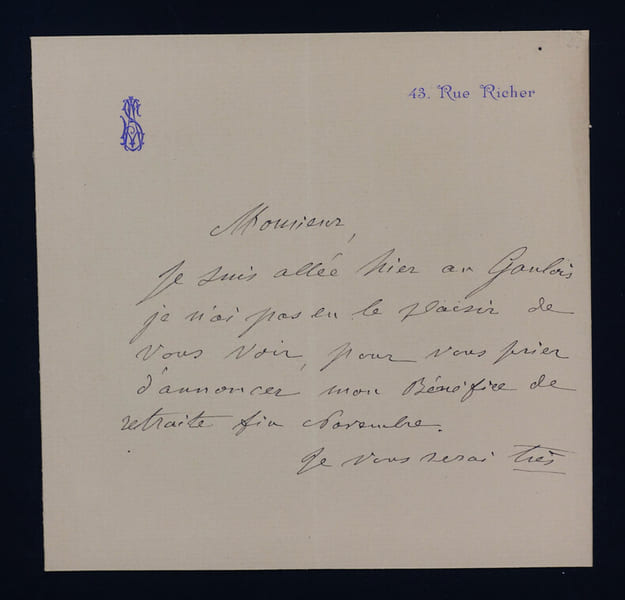 43. Rue Richer
Monsieur,
Je suis allée hier au Gaulois
je n'ai pas eu le plaisir de
vous voir, pour vous prier
d'annoncer mon Bénéfice de
retraite fin Novembre.
Je vous serai très